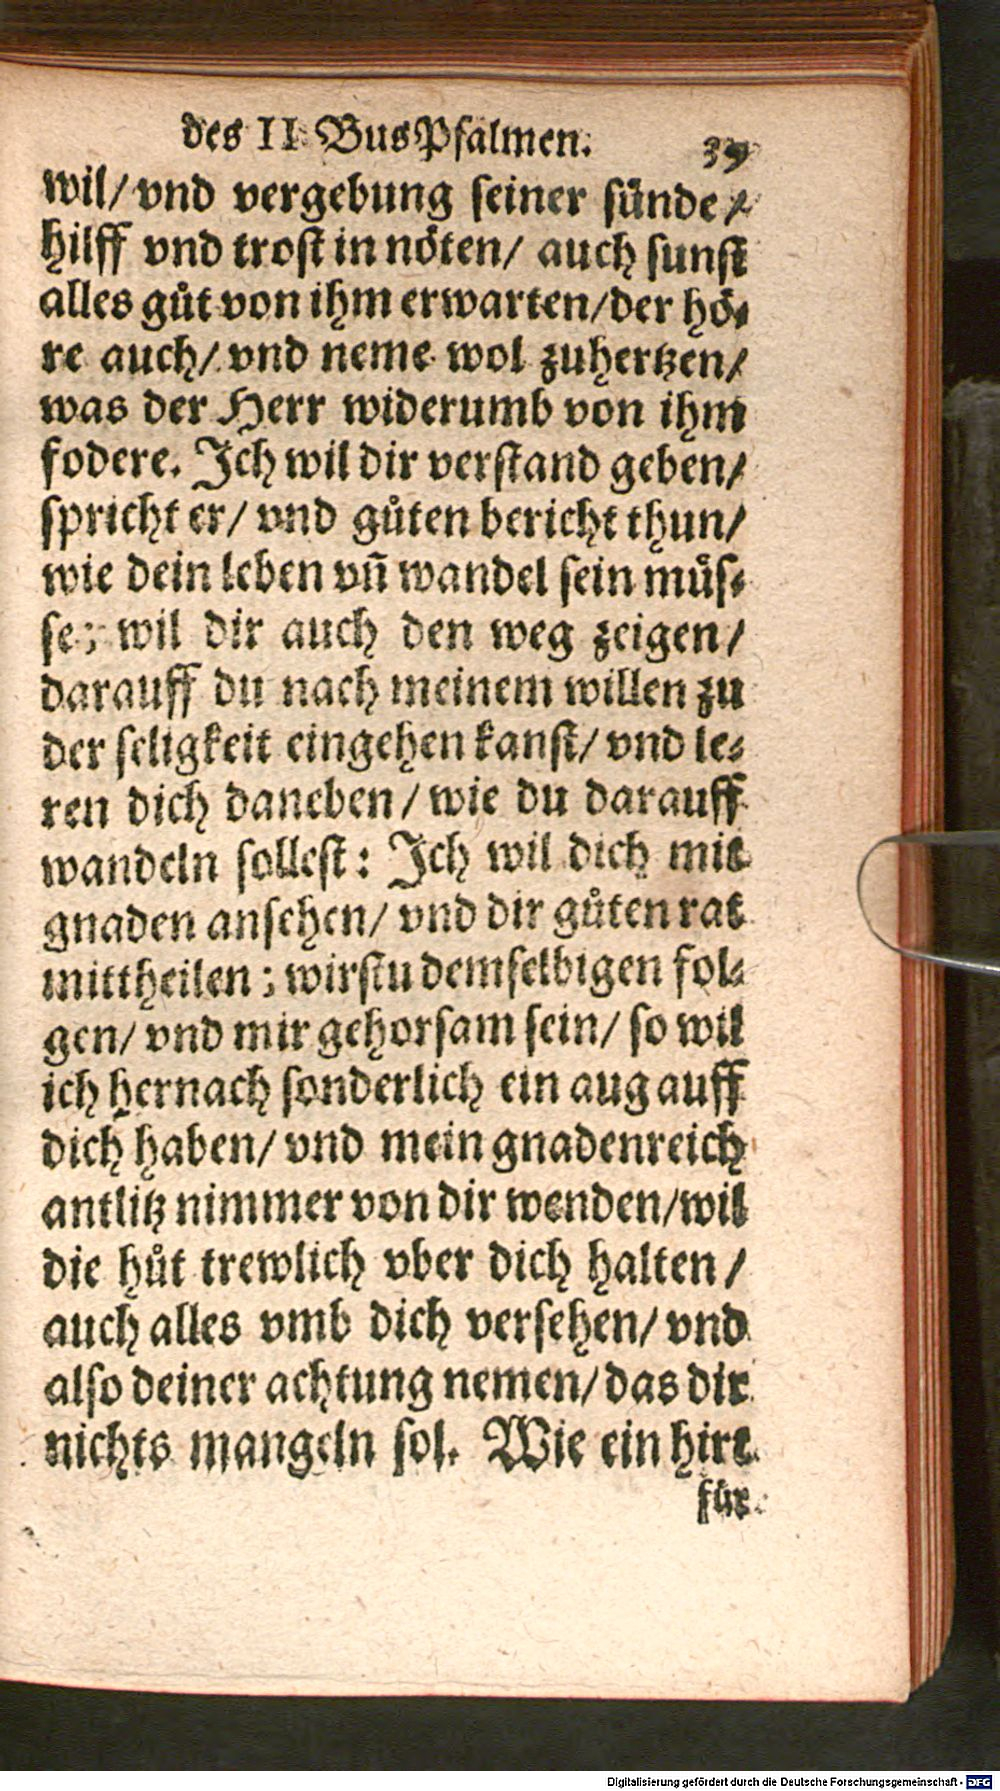 des II BusPsalmen. 39
wil/ vnd vergebung seiner sünde/
hilff vnd trost in nöten/ auch sunst
alles gůt von ihm erwarten/ der hö⸗
re auch/ vnd neme wol zuhertzen/
was der Herr widerumb von ihm
fodere. Ich wil dir verstand geben/
spricht er/ vnd gůten bericht thun/
wie dein leben vñ wandel sein müs⸗
se; wil dir auch den weg zeigen/
darauff du nach meinem willen zu
der seligkeit eingehen kanst/ vnd le⸗
ren dich daneben/ wie du darauff
wandeln sollest: Ich wil dich mit
gnaden ansehen/ vnd dir gůten rat
mittheilen; wirstu demselbigen fol⸗
gen/ vnd mir gehorsam sein/ so wil
ich hernach sonderlich ein aug auff
dich haben/ vnd mein gnadenreich
antlitz nimmer von dir wenden/ wil
die hůt trewlich vber dich halten/
auch alles vmb dich versehen/ vnd
also deiner achtung nemen/ das dir
nichts mangeln sol. Wie ein hirt
für
Digitalisierung gefördert durch die Deutsche Forschungsgemeinschaft - DFG